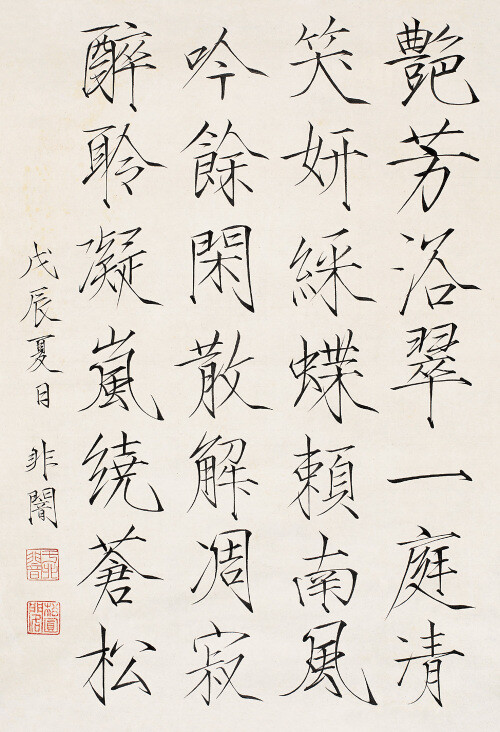 艷芳浴翠一庭清
笑妍綵蝶頼南風
吟餘閑散解凋寂
醉聆凝嵐繞蒼松
戊辰夏日 非闇